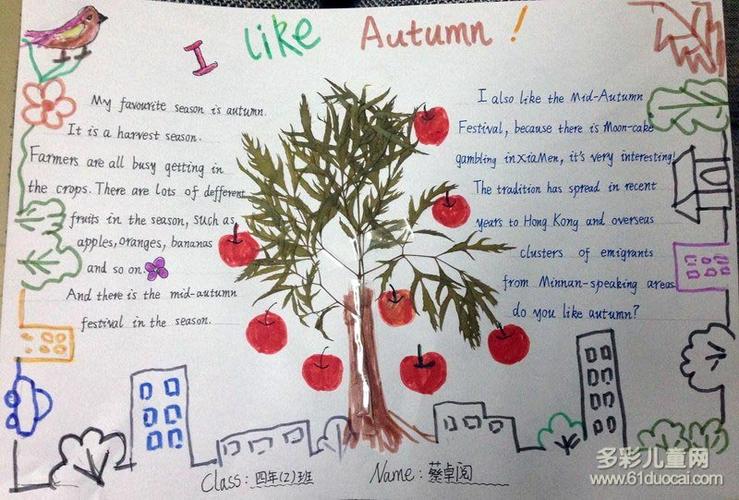 I like Autumn!
My favourite season is autumn.
It is a harvest season.
Farmers are all busy getting in
the crops. There are lots of defferent
fruits in the season, such as
apples, oranges, bananas
and so on
And there is the mid-autumn
festival in the season.
I also like the Mid-Autumn
Festival, because there is Moon-cake
gambling in XiaMen, it's very interesting!
The tradition has spread in recent
years to Hong Kong and overseas
clusters of emigrants
from Minnan-speaking areas
do you like autumn?
Class: 四年(2)班 Name: 蔡卓阅
多彩儿童网
www.61duocai.com